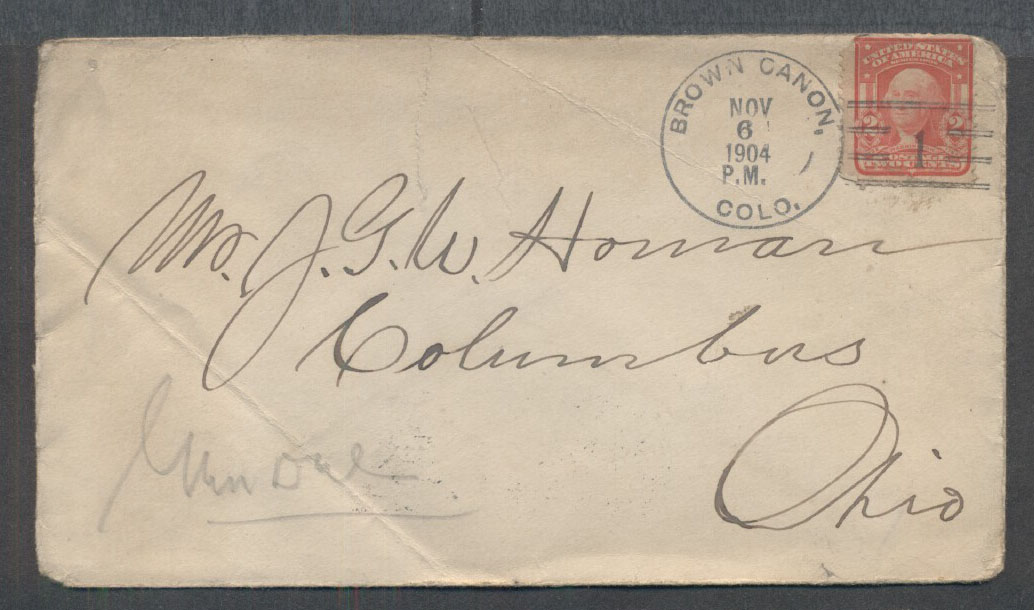 BROWN CANON,
NOV
6
1904
P.M.
COLO.
UNITED STATES
OF AMERICA
2 2
TWO CENTS
1
Mr. J. G. W. Homan
Columbus
Ohio